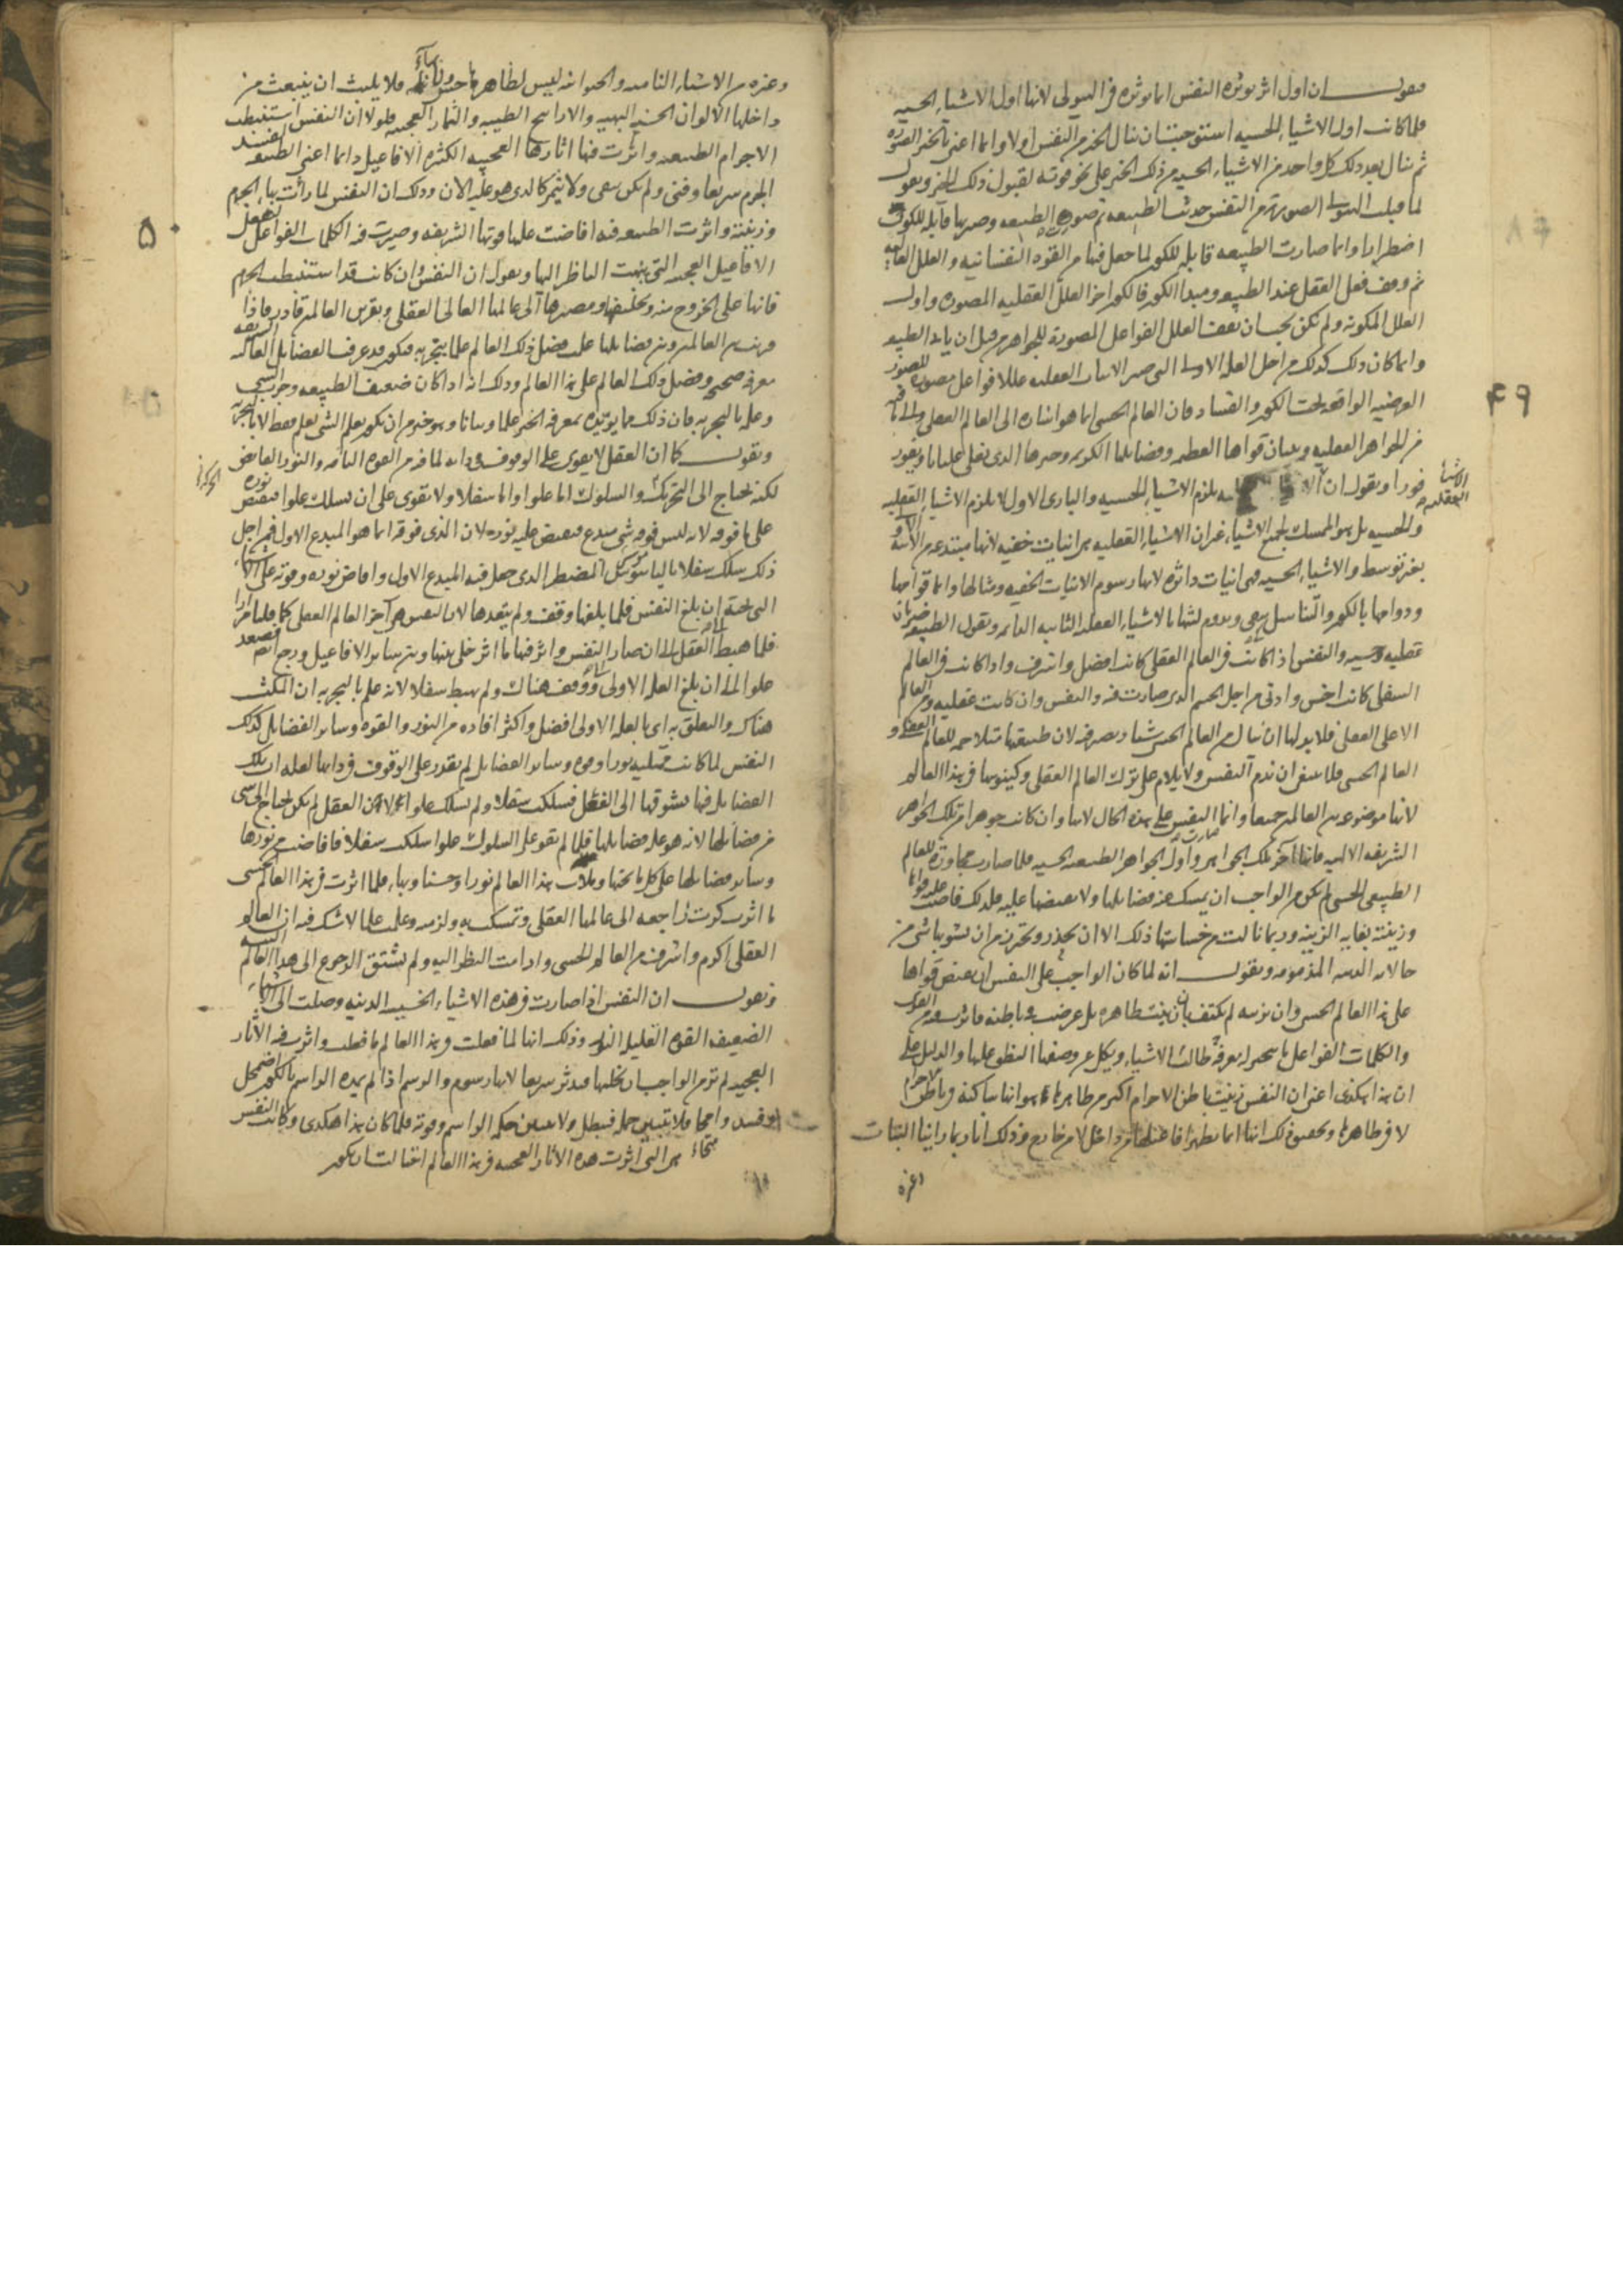 فنقول ان اول اثر تؤثره النفس انما تؤثره في الهيولى لانها اول الاشياء الحسيه
فلما كانت اول الاشياء الحسيه استوجبت ان تنال الخير من النفس اولا وانما اعني بالخير الصوره
ثم ينال بعد ذلك كل واحد من الاشياء الحسيه من ذلك الخير على نحو قوته لقبول ذلك الخير ونقول
لما قبلت الهيولى الصوره من النفس حدثت الطبيعه ثم صورت الطبيعه وصيرتها قابله للكون
اضطرارا وانما صارت الطبيعه قابله للكون لما جعل فيها من القوه النفسانيه والعلل العاليه
ثم وقف فعل العقل عند الطبيعه ومبدا الكون فالكون اخر العلل العقليه المصوره واول
العلل المكونه ولم يكن يجب ان تقف العلل الفواعل المصوره للجواهر من قبل ان ياتي الطبيعه
وانما كان ذلك كذلك من اجل العله الاولى التي صيرت الانيات العقليه عللا فواعل مصوره للصور
العرضيه الواقعه تحت الكون والفساد فان العالم الحسي انما هو اشاره الى العالم العقلي والى ما فيه
من الجواهر العقليه وبيان قواها العظيمه وفضايلها الكريمه وخيرها الذي يغلي غليانا ويفور
فورا ونقول ان الاشياء العقليه يلزم الاشياء الحسيه والباري الاول لا يلزم الاشياء العقليه
والحسيه بل هو الممسك لجميع الاشياء غير ان الاشياء العقليه هي انيات خفيه لانها مبتدعه من الانيه الاولى
بغير توسط والاشياء الحسيه فهي انيات داثره لانها رسوم الانيات الخفيه ومثالها وانما قوامها
ودوامها بالكون والتناسل كي تبقى وتدوم تشبها بالاشياء العقليه الثابته الدائمه ونقول الطبيعه ضربان
عقليه وحسيه والنفس اذا كانت في العالم العقلي كانت افضل واشرف واذا كانت في العالم
السفلي كانت اخس وادنى من اجل الجسم الذي صارت فيه والنفس وان كانت عقليه ومن العالم
الاعلى العقلي فلا بد لها ان تنال من العالم الحسي شيئا وتصير فيه لان طبيعتها متلاحمه للعالم العقلي و
العالم الحسي فلا ينبغي ان تذم النفس ولا تلام على ترك العالم العقلي وكينونتها في هذا العالم
لانها موضوعه بين العالمين جميعا وانما صارت النفس على هذه الحال لانها وان كانت جوهرا من تلك الجواهر
الشريفه الالهيه فانها اخر تلك الجواهر واول الجواهر الطبيعيه الحسيه فلما صارت مجاوره للعالم
الطبيعي الحسي لم يكن من الواجب ان تمسك عنه فضايلها ولا تفيضها عليه فلذلك فاضت عليه قواها
وزينته بغايه الزينه وربما نالت من خساستها ذلك الا ان تحذر وتحترز من ان يشوبها شي من
حالاته الدنيه المذمومه ونقول انه لما كان الواجب على النفس ان تفيض قواها
على هذا العالم الحسي وان تزينه لم تكتف بان زينت ظاهره بل عرضت في باطنه فاثرت فيه من القوى
والكلمات الفواعل ما يتحير له معرفه طالب الاشياء ويكل عن وصفها النطق عليها والدليل على
ان هذا هكذي اعني ان النفس زينت باطن الاجرام اكثر من ظاهرها هو انها ساكنه في باطن الاجرام
لا في ظاهرها وتحقيق ذلك انها انما تظهر افاعيلها من داخل لا من خارج وذلك انا ربما راينا النبات
وغيره
٤٩
وغيره من الاشياء الناميه والحيوانيه ليس لظاهرها حسن وبهاء فلا يلبث ان ينبعث من
داخلها الالوان الحسنه البهيه والاراييح الطيبه والثمار العجيبه فلولا ان النفس استنبطت
الاجرام الطبيعيه واثرت فيها اثارها العجيبه الكثيره الافاعيل دائما اعني الطبيعه لفسد
الجرم سريعا وفني ولم يكن يبقى ولا يثمر كالذي هو عليه الان وذلك ان النفس لما رأت بهاء الجرم
وزينته واثرت الطبيعه فيه افاضت عليها قوتها الشريفه وصيرت فيه الكلمات الفواعل لتفعل
الافاعيل العجيبه التي يبهت الناظر اليها ونقول ان النفس وان كانت قد استنبطت الجرم
فانها على الخروج منه وتخليفه ومصيرها الى عالمها العالي العقلي وبقرين العالمين قادره فاذا
قرنت بين العالمين وبين فضايلها علمت فضل ذلك العالم علما بتجربه فتكون قد عرفت الفضايل العاليه الشريفه
معرفه صحيحه وفضل ذلك العالم على هذا العالم وذلك انه اذا كان ضعيف الطبيعه وجرب الشي
وعلمه بالتجربه فان ذلك مما يزيده بمعرفه الخير علما وبيانا وهو خير من ان يكون يعلم الشي بعلم فقط لا بالتجربه
ونقول كما ان العقل لا يقوى على الوقوف في ذاته لما فيه من القوه التامه والنور الفائض
لكنه يحتاج الى التحريك والسلوك اما علوا واما سفلا ولا يقوى على ان يسلك علوا فيفيض نوره
على ما فوقه لانه ليس فوقه شي مبدع فيفيض عليه نوره لان الذي فوقه انما هو المبدع الاول فمن اجل
ذلك سلك سفلا بالناموس المضطر الذي جعل فيه المبدع الاول وافاض نوره وقوته على الاشياء
التي تحته الى ان بلغ النفس فلما بلغها وقف ولم يتعدها لان النفس هي اخر العالم العقلي كما قلنا مرارا
فلما هبط العقل الى ان صار الى النفس واثر فيها ما اثر خلى بينها وبين ساير الافاعيل ورجع ثم تصعد
علوا الى ان بلغ العله الاولى ووقف هناك ولم يهبط سفلا لانه علم بالتجربه ان المكث
هناك والتعلق به اي بالعله الاولى افضل واكثر افاده من النور والقوه وساير الفضايل كذلك
النفس لما كانت ممتليه نورا وقوه وساير الفضايل لم تقدر على الوقوف في ذاتها لعله ان تلك
الفضايل فيها تشوقها الى الفعل فسلكت سفلا ولم تسلك علوا لان العقل لم يكن يحتاج الى شي
من فضائلها لانه هو عله فضايلها فلما لم تقو على السلوك علوا سلكت سفلا فافاضت من نورها
وساير فضائلها على كل ما تحتها وملأت هذا العالم نورا وحسنا وبهاء فلما اثرت في هذا العالم الحسي
ما اثرت كرت راجعه الى عالمها العقلي وتمسكت به ولزمته وعلمت علما لا شك فيه ان العالم
العقلي اكرم واشرف من العالم الحسي وادامت النظر اليه ولم تشتق الرجوع الى هذا العالم البته
ونقول ان النفس اذا صارت في هذه الاشياء الحسيه الدنيه وصلت الى الاشياء
الضعيفه القوه القليله النور وذلك انها لما فعلت في هذا العالم ما فعلت واثرت فيه الاثار
العجيبه لم تر من الواجب ان تخليها فتدثر سريعا لانها رسوم والرسم اذا لم يمده الراسم بالكون اضمحل
وفسد وامحى فلا يتبين جماله فيبطل ولا تبين حكمه الراسم وقوته فلما كان هذا هكذى وكانت النفس
هي التي اثرت هذه الاثار العجيبه في هذا العالم احتالت ان تكون
٥٠